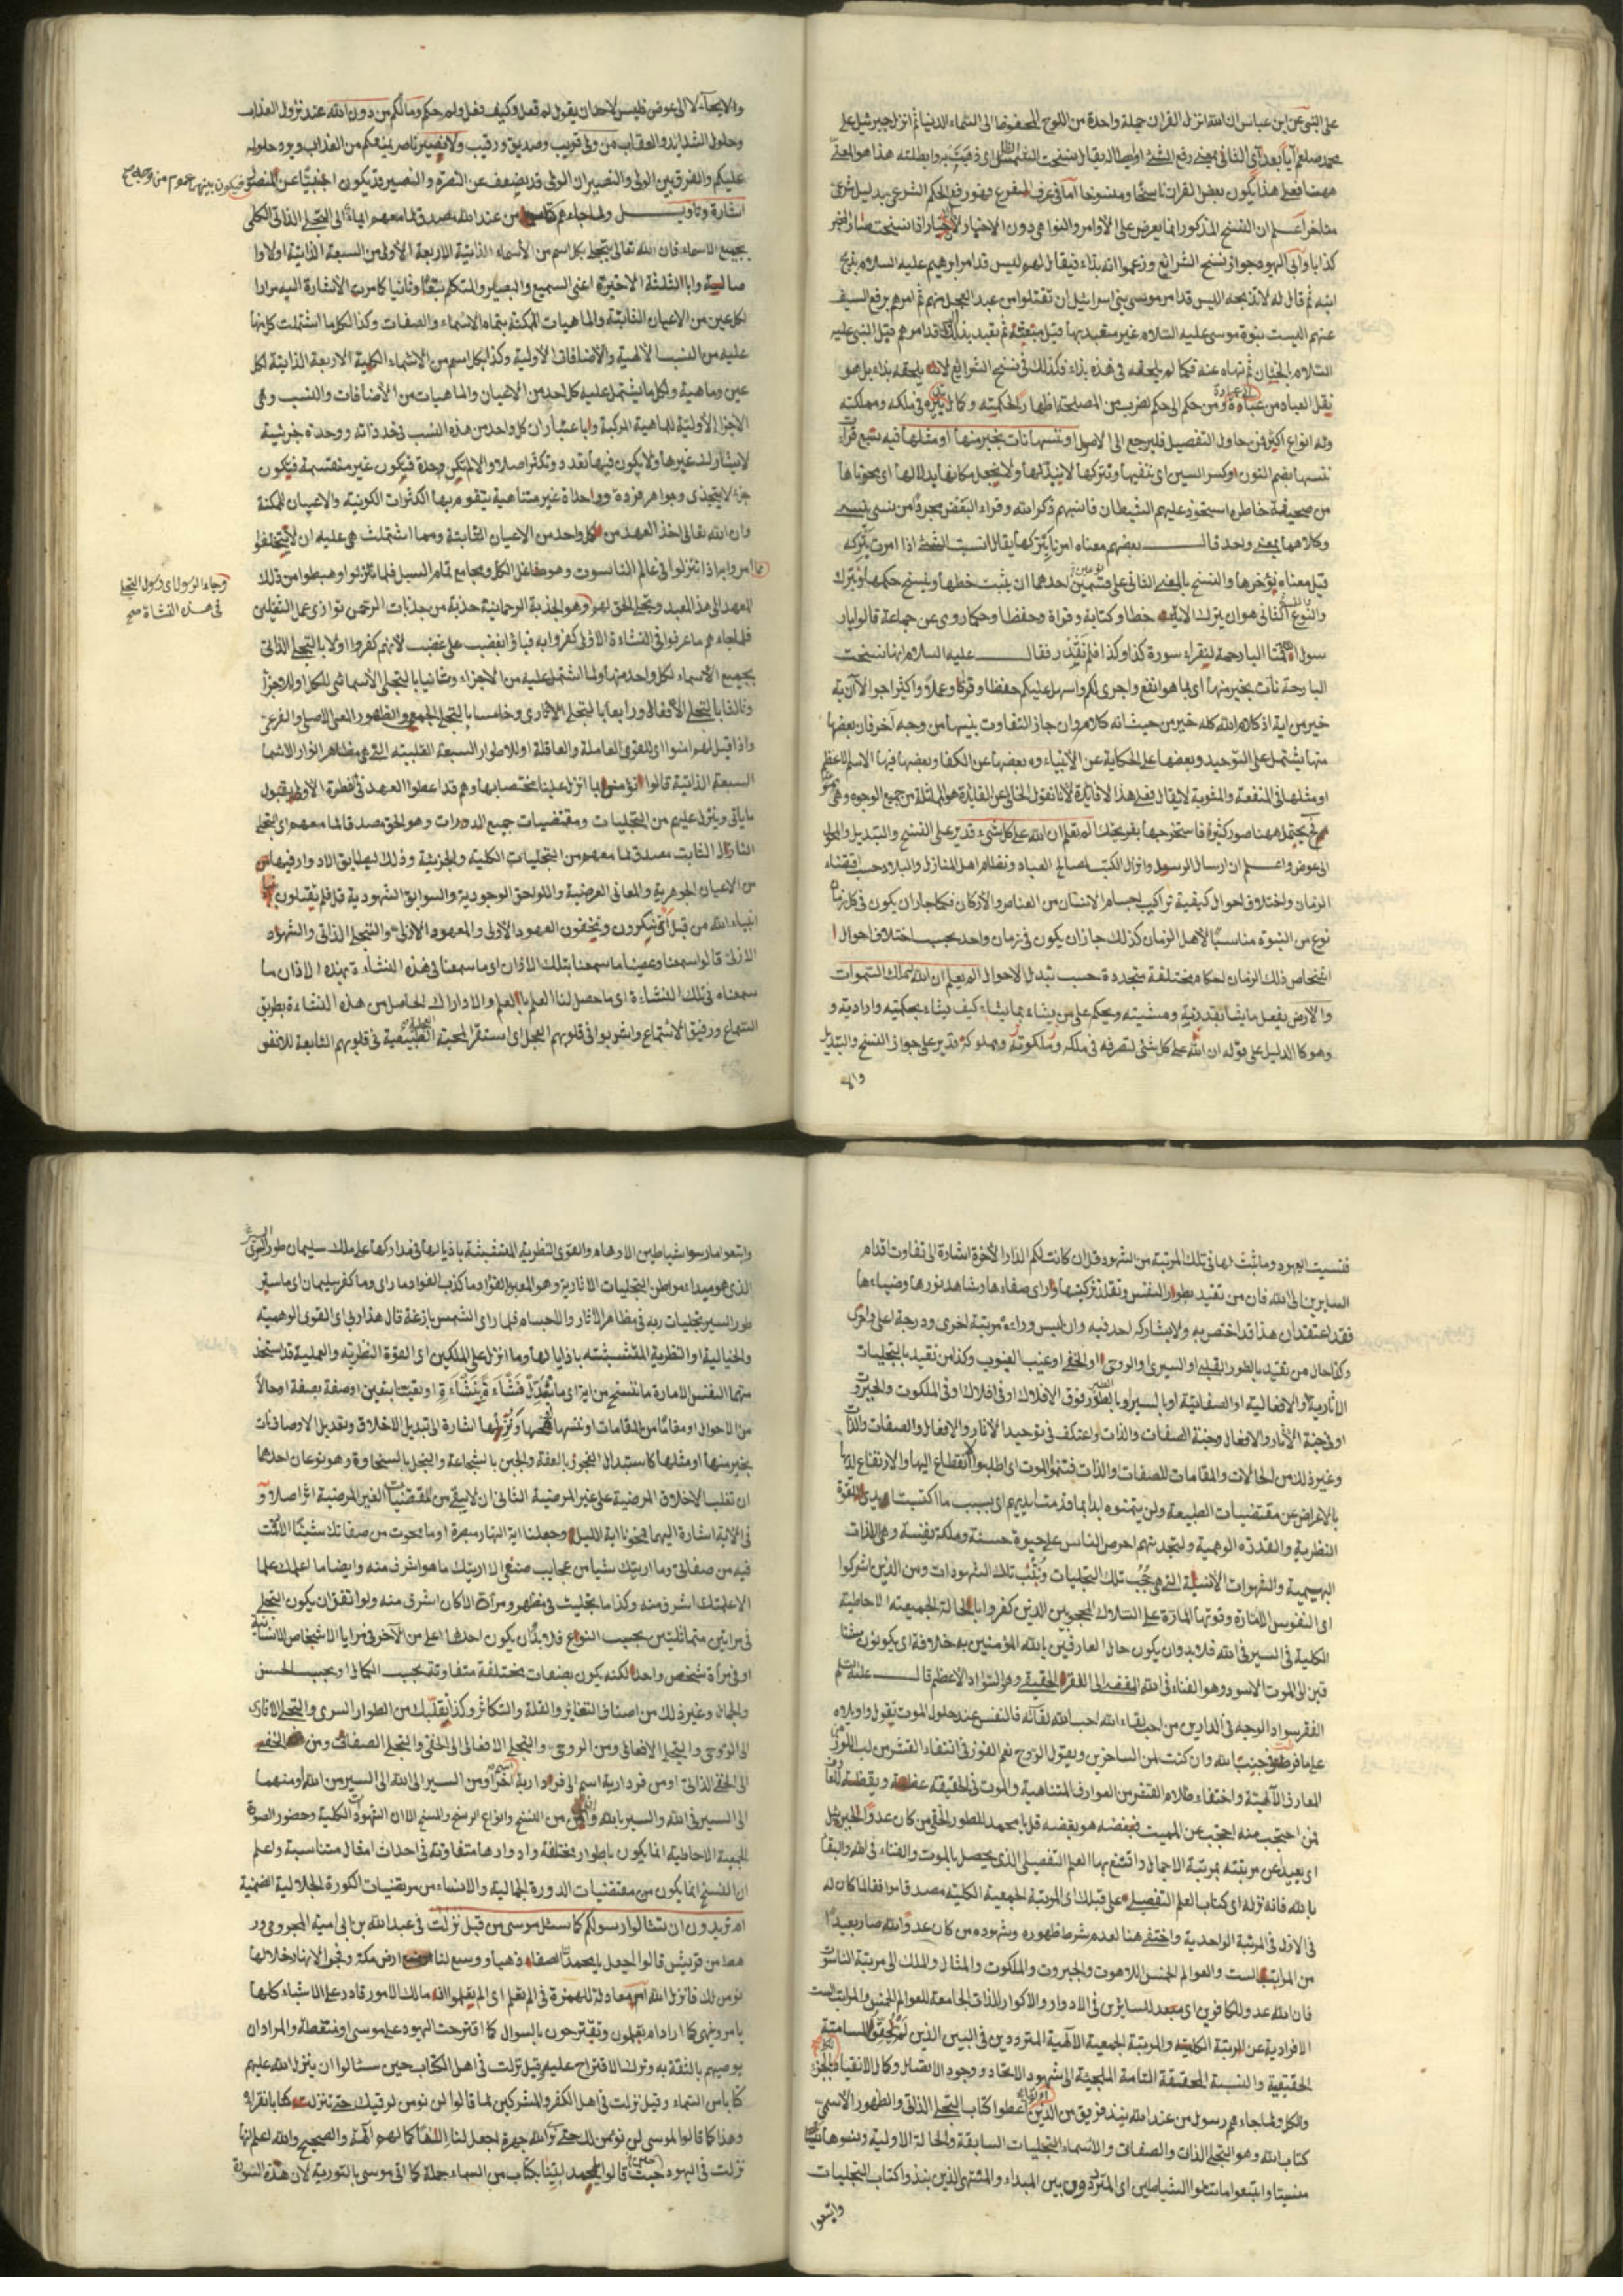 على النبي عن ابن عباس ان الله انزل القران جملة واحدة من اللوح المحفوظ الى السماء الدنيا ثم انزل جبرئيل على
محمد صلعم آيا بعد آي الثاني بمعنى رفع الشئ وابطاله يقال نسخت الشمس الظل اى ذهبت به وابطلته هذا هو المعنى
ههنا فعلى هذا يكون بعض القران ناسخا ومنسوخا اما في عرف الشرع فهو رفع الحكم الشرعي بدليل شرعي
متاخر اعلم ان النسخ المذكور انما يعرض على الأوامر والنواهي دون الاخبار لان الاخبار اذا نسخت صار المخبر
كذابا وآبى اليهود جواز نسخ الشرائع وزعموا انه بداء فيقال لهم اليس قد امر ابرهيم عليه السلام بذبح
ابنه ثم قال له لا تذبحه اليس قد امر موسى بني اسرائيل ان تقتلوا من عبد العجل منهم ثم امرهم برفع السيف
عنهم اليست نبوة موسى عليه السلام غير متعبد بها قبل بعثته ثم تعبد بذلك قد امرهم قبل النبي عليه
السلام الختان ثم نهاه عنه فكما لم يلحقه في هذه بداء فكذلك في نسخ الشرائع لا يلحقه بداء بل هو
نقل العباد من عبادة ومن حكم الى حكم لضرب من المصلحة اظهارا لحكمته وكمال في ملكه ومملكته
وله انواع اكثر فمن حاول التفصيل فليرجع الى الاصول او ننسها نات بخير منها او مثلها فيه تسع قراءت
ننسها بضم النون وكسر السين اى نتفيها ونتركها لا نبدلها ولا نجعل مكانها بدلا لها اى محوناها
من صحيفة خاطره استحوذ عليهم الشيطان فانسيهم ذكر الله وقراء البعض مجردا من نسي ينسى
وكلاهما بمعنى واحد قال بعضهم معناه امرنا بتركها يقال انسيت الشئ اذا امرت بتركه
قيل معناه نؤخرها والنسخ بالمعنى الثاني على قسمين احدهما ان يثبت خطها وينسخ حكمها ويترك
والنوع الثاني هو ان يترك الاية خطا وكتابة وقراة وحفظا وحكما روى عن جماعة قالوا يار
سول الله قمنا البارحة لنقراء سورة كذا وكذا فلم نقدر فقال عليه السلام انها نسخت
البارحة نات بخير منها اى بما هو انفع واجرى لكم واسهل عليكم حفظا وعملا واكثر اجرا لا آن آية
خير من اية اذ كلام الله كله خير من حيث انه كلام وان جاز التفاوت بينها من وجه آخر فان بعضها
منها يشتمل على التوحيد وبعضها على الحكاية عن الأنبياء وبعضها عن الكفار وبعضها فيها الاسم الاعظم
او مثلها في المنفعة والمثوبة لا يقال فعلى هذا لا فائدة لانا نقول الخالي عن الفايدة هو المماثلة من جميع الوجوه وهي
يحتمل ههنا صور كثيرة فاستخرجها بقريحتك الم تعلم ان الله على كل شيء قدير على النسخ والتبديل والمحو
الى عوض واعلم ان ارسال الرسول وانزال الكتب لمصالح العباد ونظام اهل المنازل والبلاد وحسب اقتضاء
الزمان واختلاف احوال كيفية تراكيب اجسام الانسان من العناصر والأركان فكما جاز ان يكون في كل زمان
نوع من النبوة مناسبا لاهل الزمان كذلك جاز ان يكون في زمان واحد بحسب اختلاف احوال ا
شخاص ذلك الزمان احكام مختلفة متجددة حسب تبدل الاحوال الم يعلم ان الله له ملك السموات
والأرض يفعل ما يشاء بقدرته ومشيته ويحكم على من يشاء بما يشاء كيف يشاء بحكمته وارادته و
وهو كالدليل على قوله ان الله على كل شئ لتصرفه في ملكه وملكوته ومملوكه قدير على جواز النسخ والتبديل
والا
والايجاء لا الى عوض فليس لاحد ان يقول لم فعل وكيف فعل ولم حكم وما لكم من دون الله عند نزول العذاب
وحلول الشدائد والعقاب من ولي قريب وصديق ورقيب ولا نصير ناصر يمنعكم من العذاب ويرد حلوله
عليكم والفرق بين الولي والنصير ان الولي قد يضعف عن النصرة والنصير قد يكون اجنبيا عن المنصور
فيكون بينهما عموم من وجه صح
اشارة وتاويل ولما جاءهم كتاب من عند الله مصدق لما معهم ايماء الى التجلي الذاتي الكلي
بجميع الاسماء فان الله تعالى يتجلى بكل اسم من الأسماء الذاتية الأربعة الأولى من السبعة الذاتية اولا وا
صالة وبالثلثة الاخيرة اعني السميع والبصير والمتكلم تبعا وثانيا كما مرت الاشارة اليه مرارا
لكل عين من الاعيان الثابتة والماهيات الممكنة بتمام الأسماء والصفات وكذا لكل ما اشتملت كل منها
عليه من النسب الالهية والأضافات الأولية وكذا بكل اسم من الأسماء الكلية الأربعة الذاتية لكل
عين وماهية ولكل ما يشتمل عليه كل احد من الاعيان والماهيات من الأضافات والنسب وهي
الأجزاء الأولية للماهية المركبة وباعتبار ان كل واحد من هذه النسب في حد ذاته ووحدة جزئية
لا يشارك غيرها ولا يكون فيها تعدد وتكثر اصلا والا لم تكن وحدة فيكون غير منقسمة فيكون
جزء لا يتجزى وجواهر فردة وواحداة غير متناهية يتقوم بها الكثرات الكونية والاعيان الممكنة
وان الله تعالى اخذ العهد من كل واحد من الاعيان الثابتة ومما اشتملت هي عليه ان لا يتخلفوا
امر وابه اذا تنزلوا في عالم الناسوت وهو مفاعل الكل ومجامع تمام السبل فلما تنزلوا وهبطوا من ذلك
وجاء الرسول اى رسول التجلي
في هذه النشاة صح
المعهد الى هذا المعبد ويتجلى الحق لهم وهو الجذبة الرحمانية جذبة من جذبات الرحمن توازى عمل الثقلين
فلما جاءهم ما عرفوا في النشاءة الأولى كفروا به فباؤا بغضب على غضب لانهم كفروا اولا بالتجلي الذاتي
بجميع الأسماء لكل واحد منها ولما اشتمل عليه من الأجزاء وثانيا بالتجلي الأسمائي للكل او للاجزاء
وثالثا بالتجلي الأفعالي ورابعا بالتجلي الآثاري وخامسا بالتجلي الجمعي والظهور العيني الاصلي والفرعي
واذا قيل لهم امنوا اى للقوى العاملة والعاقلة او للاطوار السبعة القلبية التي هي مظاهر انوار الاسماء
السبعة الذاتية قالوا نؤمن بما انزل علينا مختصا بها وهم قد اعطوا العهد في الفطرة الأولى بقبول
ما ياتي وينزل عليهم من التجليات ومقتضيات جميع الدورات وهو الحق مصدقا لما معهم اى التجلي
النازل الثابت مصدق لما معهم من التجليات الكلية والجزئية وذلك ليطابق الادوار فيها
من الاعيان الجوهرية والمعاني العرضية واللواحق الوجودية والسوابق الشهودية قل فلم تقتلون
انبياء الله من قبل اى تنكرون وتخفون العهود الأولى والمعهود الازلى هو التجلي الذاتي والشهود
الازلى قالوا سمعنا وعصينا ما سمعنا بتلك الآذان اى ما سمعنا في هذه النشأة بهذه الاذان ما
سمعناه في تلك النشاءة اى ما حصل لنا العلم بالعلم والادراك الحاصل من هذه النشاءة بطريق
السماع ورفيق الاستماع واشربوا في قلوبهم العجل اى استقر المحبة الطبيعية في قلوبهم التابعة للانفس
فنسيت العهود وما ثبت لها في تلك المرتبة من الشهود قل ان كانت لكم الدار الآخرة اشارة الى تفاوت اقدام
السايرين الى الله فان من تقيد بطور النفس وتقلد تزكيتها وراى صفاءها وشاهد نورها وضياءها
فقد اعتقد ان هذا قد اختص به ولا يشاركه احد فيه وان ليس وراءه مرتبة اخرى ودرجة اعلى واحرى
وكذا حال من تقيد بالطور القلبي او السري او الروحي او الخفي او غيب الغيوب وكذا من تقيد بالتجليات
الآثارية او الافعالية او الصفاتية او بالسير او بالطور فوق الافلاك او في افلاك او في الملكوت والجبروت
او في جنة الآثار والافعال وجنة الصفات والذات واعتكف في توحيد الاثار والافعال والصفات والذات
وغير ذلك من الحالات والمقامات للصفات والذات فتمنوا الموت اى اطلبوا الانقطاع اليها والارتفاع لديها
بالاعراض عن مقتضيات الطبيعة ولن يتمنوه ابدا بما قدمت ايديهم اى بسبب ما اكتسبت القوة
النظرية والقدرة الوهمية ولتجدنهم احرص الناس على حيوة حسنة وملكة نفيسة وهي اللذات
البهيمية والشهوات الانسية التي هي تحجب تلك التجليات وتلك الشهودات ومن الذين اشركوا
اى النفوس الامارة وقوتها المارة على السلوك المحجوبين الذين كفروا بالحالة الجمعية الاحاطية
الكلية في السير في الله فلا بد وان يكون حال العارفين بالله المؤمنين به خلافه اى يكونون
قبل الموت الاسود وهو الفناء في الله الى الفقر الحقيقي وهو السواد الأعظم قال عليه السلم
الفقر سواد الوجه في الدارين من احب لقاء الله احب الله لقائه فالنفس عند حلول الموت يقول واويلاه
على ما فرطت في جنب الله وان كنت لمن الساخرين ويقول الروح نعم الفوز في انتفاء القشر من لب اللوز
المعارف الالهية واختفاء ظلام القشر من العوارف المتناهية والموت في الحقيقة ويقظة
لمن احتجب منه احجب عن المميت فبغضه هو بغضه قل يا محمد للطور الخفي من كان عدوا لجبريل
اى بعيدا عن مرتبته بمرتبة الاجمال واتشع بها العلم التفصيلي الذي يحصل بالموت والفناء في الله والبقاء
بالله فانه نزله اى كتاب العلم التفصيلي على قبلك اى المرتبة الجمعية الكلية مصدقا موافقا لما كان له
في الازل في المرتبة الواحدية واختفى هنا لعدم شرط ظهوره وشهوده من كان عدوا لله صار بعيدا
من المراتب الست والعوالم الخمس اللاهوت والجبروت والملكوت والمثال والملك الى مرتبة الناسوت
فان الله عدو للكافرين اى مبعد للسايرين في الادوار والاكوار للذات الجامعة للعوالم الخمس والمراتب الست
الافرادية عن المرتبة الكلية والمرتبة الجمعية الالهية المترددين في البين الذين
الحقيقية والنسبة المحققة التامة الى شهود الاتحاد ووجود الاتصال وكمال الانقياد
والكل ولما جاءهم رسول من عند الله نبذ فريق من الذين اوتوا اعطوا كتاب التجلي الذاتي والظهور الاسمي
كتاب الله وهو التجلي الذات والصفات والأسماء التجليات السابقة والحالة الأولية ونسوها
منسيا واتبعوا ما تتلوا الشياطين اى المترددون بين المبداء والمنتهى الذين نبذوا كتاب التجليات
واتبعوا
واتبعوا ما رسوا شياطين الاوهام والقوى النظرية المتشبثة باذيالها في مداركها على ملك سليمان طور السر
الذي هو مبداء مواطن التجليات الاثارية وهو المعبر الفؤاد ما كذب الفؤاد ما راى وما كفر سليمان اى ما ستر
طور السير تجليات ربه في مظاهر الاثار والاجسام فلما راى الشمس بازغة قال هذا ربي اى القوى الوهمية
والخيالية او النظرية المتشبثه باذيالها وما انزل على الملكين اى القوة النظرية والعملية قد استحوذ
منهما النفس الامارة ما ننسخ من اية اى ما نبدل نشاءة بنشاءة او تعينا بتعين او صفة بصفة او حالا
من الاحوال او مقاما من المقامات او ننسها اشارة الى تبديل الاخلاق وتعديل الاوصاف نات
بخير منها او مثلها كاستبدال الفجور بالعفة والجبن بالشجاعة والبخل بالسخاوة وهو نوعان احدهما
ان تغلب الاخلاق المرضية على غير المرضية الثاني ان لا يبقى من المقتضيات الغير المرضية اثرا اصلا و
في الاية اشارة اليهما فمحونا اية الليل وجعلنا اية النهار مبصرة او ما محوت من صفاتك شيئا الا اثبت
فيه من صفاتي وما اريتك شيا من عجايب صنعي الا اريتك ما هو اشرف منه وايضا ما اعلمك علما
الا علمتك اشرف منه وكذا ما تجليت في مظهر ومرآة الا كان اشرف منه ولو اتفق ان يكون التجلي
في مرآتين متماثلتين بحسب النوع فلا بد ان يكون احدهما اعلى من الآخر في مرايا الاشخاص الانسانية
او في مرآة شخص واحد لكنه يكون بصفات مختلفة متفاوتة بحسب الكمال او بحسب الحسن
والجمال وغير ذلك من اصناف التغاير والقلة والتكاثر وكذا نقلك من الطوار السري والتجلي الاثاري
الى الروحي والتجلي الافعالي ومن الروحي والتجلي الافعالي الى الخفي والتجلي الصفاتي ومن الخفي
الى الخفي الذاتي او من فردارية اسم الى فردارية اسم آخر او من السير الى الله الى السير من الله او منهما
الى السير في الله والسير بالله من النسخ وانواع الرسخ والمسخ الا ان الشهود الكلية وحضور الصورة
الجمعية الاحاطية انما يكون باطوار مختلفة وادوار ها متفاوتة في احداث امثال متناسبة واعلم
ان النسخ انما يكون من مقتضيات الدورة الجمالية والانساء من مقتضيات الكورة الجلالية الضمنية
ام تريدون ان تسئلوا رسولكم كما سئل موسى من قبل نزلت في عبد الله بن ابي امية المخزومي ور
هط من قريش قالوا اجعل يا محمد الصفا ذهبا ووسع لنا ارض مكة وفجر الانهار خلالها
نومن لك فانزل الله ام معادلة للهمزة في الم تعلم اى الم يعلموا انه مالك الامور قادر على الاشياء كلها
يامر وينهى كما اراد ام يعلمون ويقترحون بالسوال كما اقترحت اليهود على موسى او منقطعة والمراد ان
يوصيهم بالثقة به وترك الاقتراح عليه وقيل نزلت في اهل الكتاب حين سئالوا ان ينزل الله عليهم
كتابا من السماء وقيل نزلت في اهل الكفر والمشركين لما قالوا لن نومن لرقيك حتى تنزل علينا كتابا نقراه
وهذا كما قالوا لموسى لن نومن لك حتى نرى الله جهرة اجعل لنا الها كما لهم آلهة والصحيح والله اعلم انها
نزلت في اليهود حين قالوا يا محمد ايتنا بكتاب من السماء جملة كما اتى موسى بالتورية لان هذه السورة